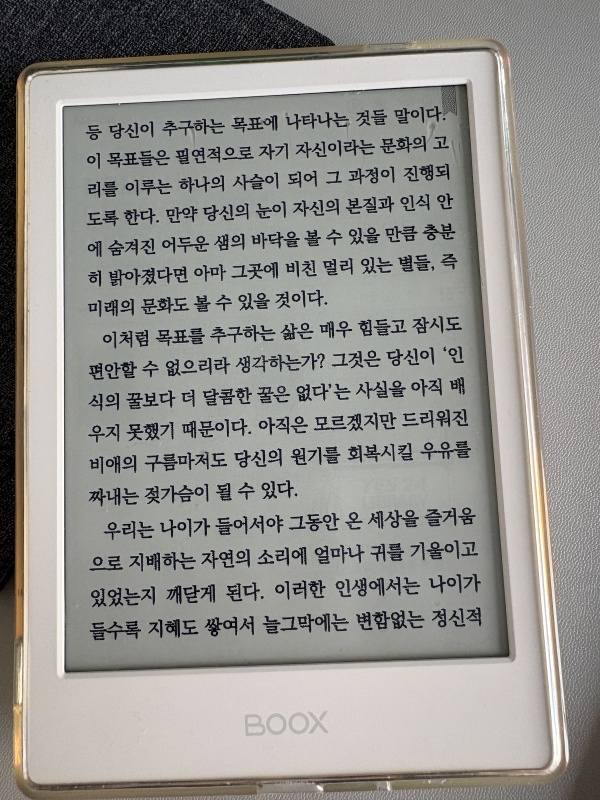 등 당신이 추구하는 목표에 나타나는 것들 말이다.
이 목표들은 필연적으로 자기 자신이라는 문화의 고
리를 이루는 하나의 사슬이 되어 그 과정이 진행되
도록 한다. 만약 당신의 눈이 자신의 본질과 인식 안
에 숨겨진 어두운 샘의 바닥을 볼 수 있을 만큼 충분
히 밝아졌다면 아마 그곳에 비친 멀리 있는 별들, 즉
미래의 문화도 볼 수 있을 것이다.
이처럼 목표를 추구하는 삶은 매우 힘들고 잠시도
편안할 수 없으리라 생각하는가? 그것은 당신이 ‘인
식의 꿀보다 더 달콤한 꿀은 없다’는 사실을 아직 배
우지 못했기 때문이다. 아직은 모르겠지만 드리워진
비애의 구름마저도 당신의 원기를 회복시킬 우유를
짜내는 젖가슴이 될 수 있다.
우리는 나이가 들어서야 그동안 온 세상을 즐거움
으로 지배하는 자연의 소리에 얼마나 귀를 기울이고
있었는지 깨닫게 된다. 이러한 인생에서는 나이가
들수록 지혜도 쌓여서 늘그막에는 변함없는 정신적
BOOX